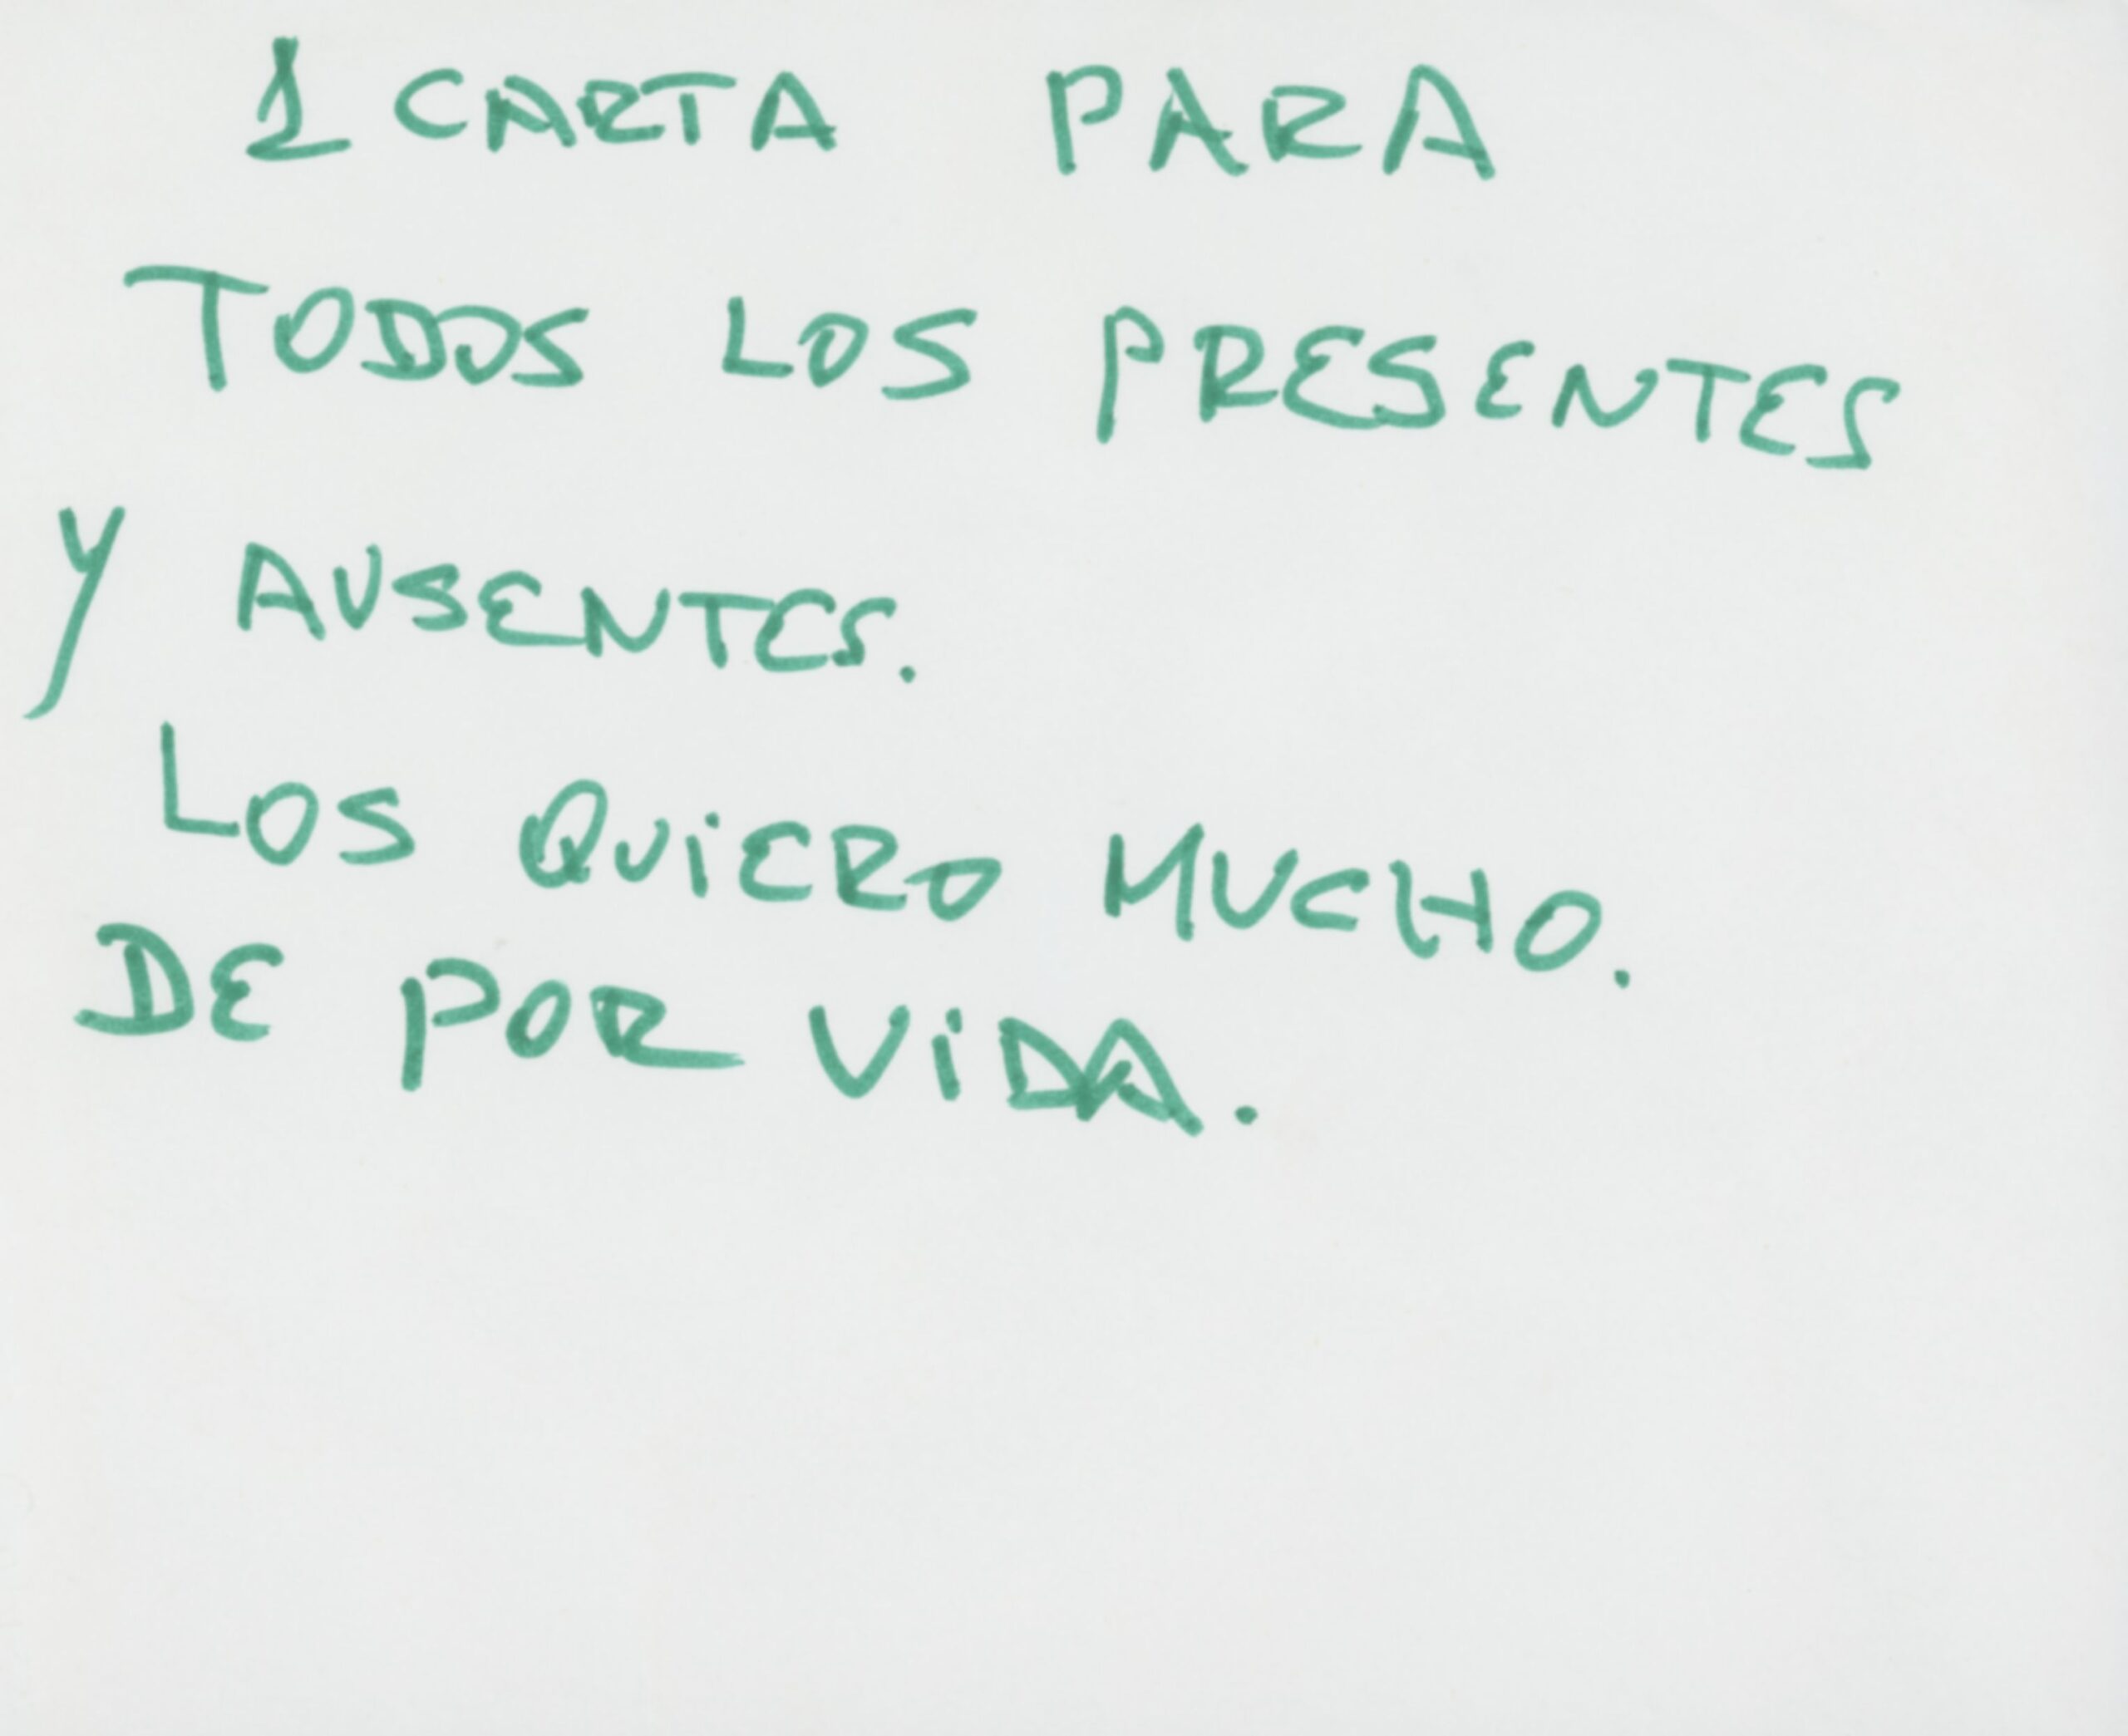 1 CARTA PARA
TODOS LOS PRESENTES
Y AUSENTES.
LOS QUIERO MUCHO.
DE POR VIDA.